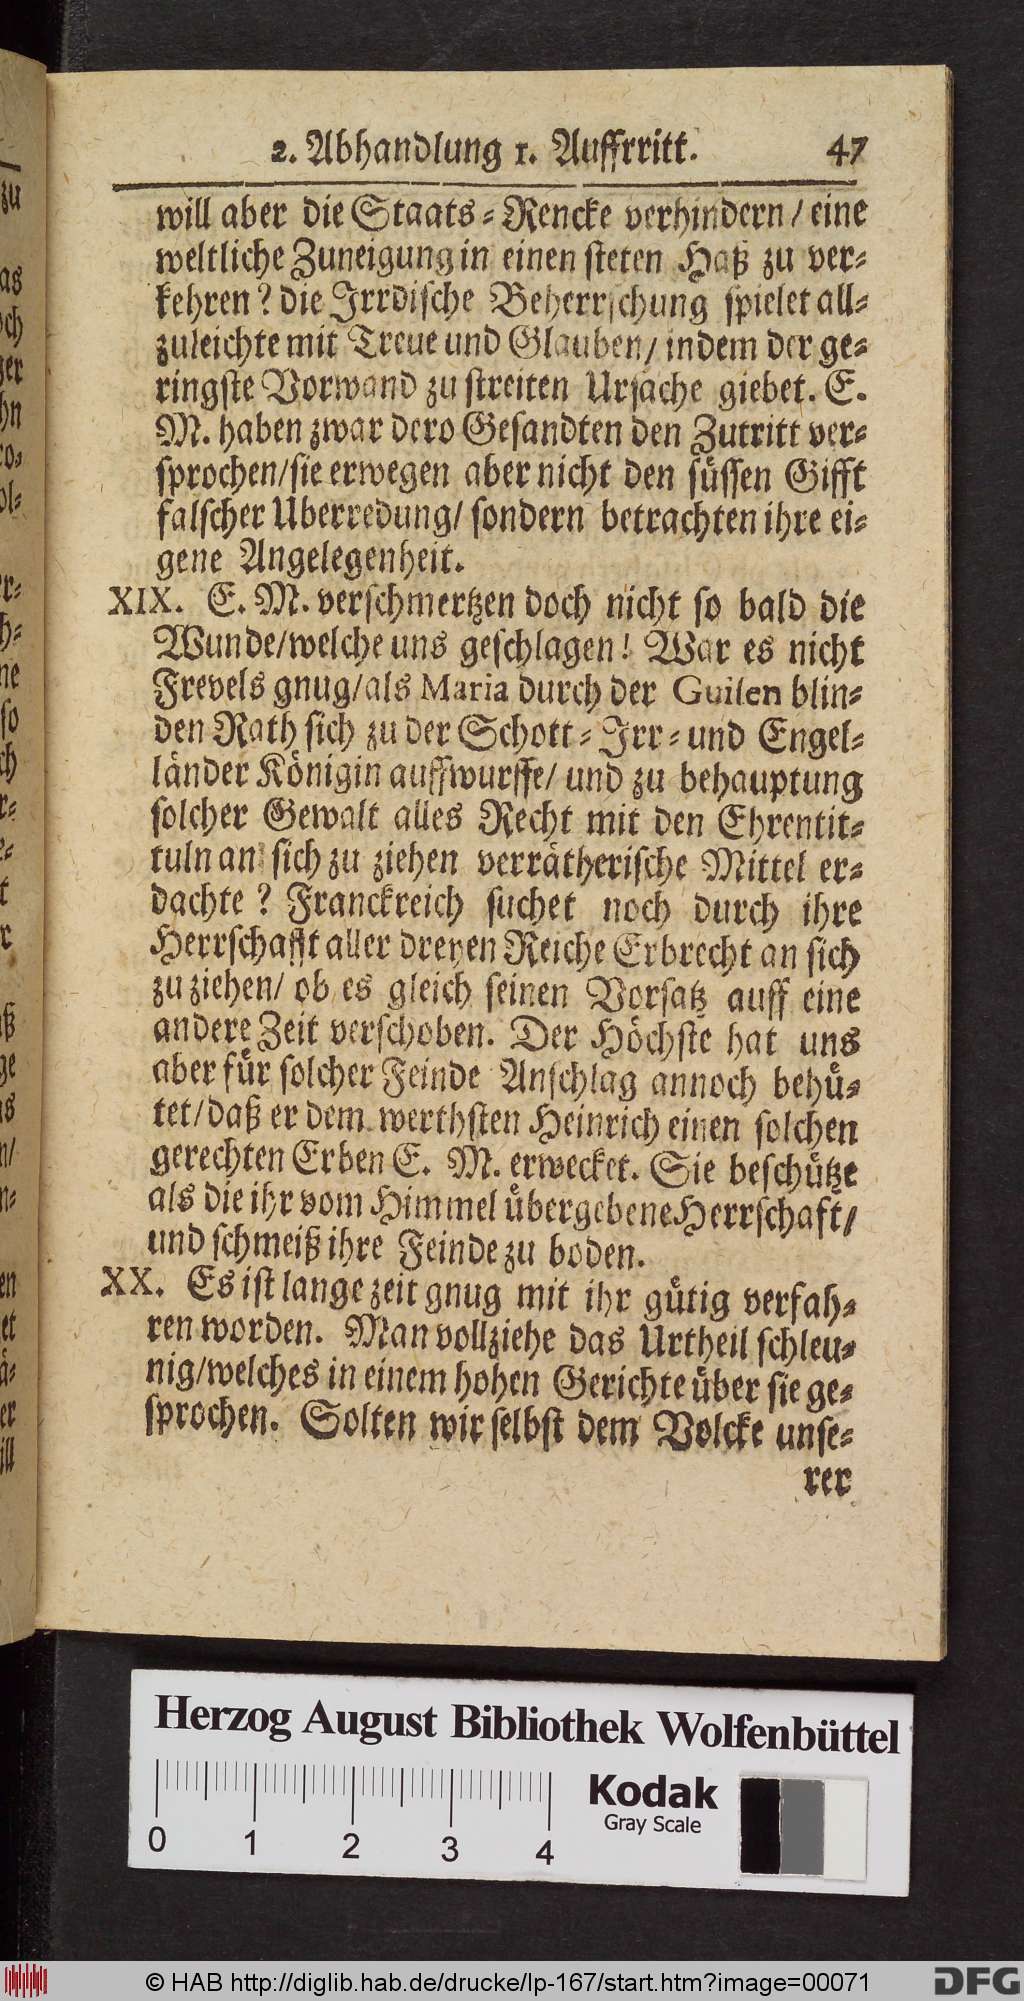 2. Abhandlung 1. Auffrritt. 47
will aber die Staats-Rencke verhindern / eine
weltliche Zuneigung in einen steten Haß zu ver-
kehren? die Irrdische Beherrschung spielet all-
zuleichte mit Treue und Glauben/ indem der ge-
ringste Vorwand zu streiten Ursache giebet. E.
M. haben zwar dero Gesandten den Zutritt ver-
sprochen/sie erwegen aber nicht den süssen Gifft
falscher Uberredung/ sondern betrachten ihre ei-
gene Angelegenheit.
XIX. E. M. verschmertzen doch nicht so bald die
Wunde/welche uns geschlagen! War es nicht
Frevels gnug/als Maria durch der Guilen blin-
den Rath sich zu der Schott-Irr-und Engel-
länder Königin auffwurffe/ und zu behauptung
solcher Gewalt alles Recht mit den Ehrentit-
tuln an sich zu ziehen verrätherische Mittel er-
dachte? Franckreich suchet noch durch ihre
Herrschafft aller dreyen Reiche Erbrecht an sich
zu ziehen/ ob es gleich seinen Vorsatz auff eine
andere Zeit verschoben. Der Höchste hat uns
aber für solcher Feinde Anschlag annoch behü-
tet/daß er dem werthsten Heinrich einen solchen
gerechten Erben E. M. erwecket. Sie beschütze
als die ihr vom Himmel übergebene Herrschaft/
und schmeiß ihre Feinde zu boden.
XX. Es ist lange zeit gnug mit ihr gütig verfah-
ren worden. Man vollziehe das Urtheil schleu-
nig/welches in einem hohen Gerichte über sie ge-
sprochen. Solten wir selbst dem Volcke unse-
rer
Herzog August Bibliothek Wolfenbüttel
Kodak
Gray Scale
0 1 2 3 4
© HAB http://diglib.hab.de/drucke/lp-167/start.htm?image=00071
DFG